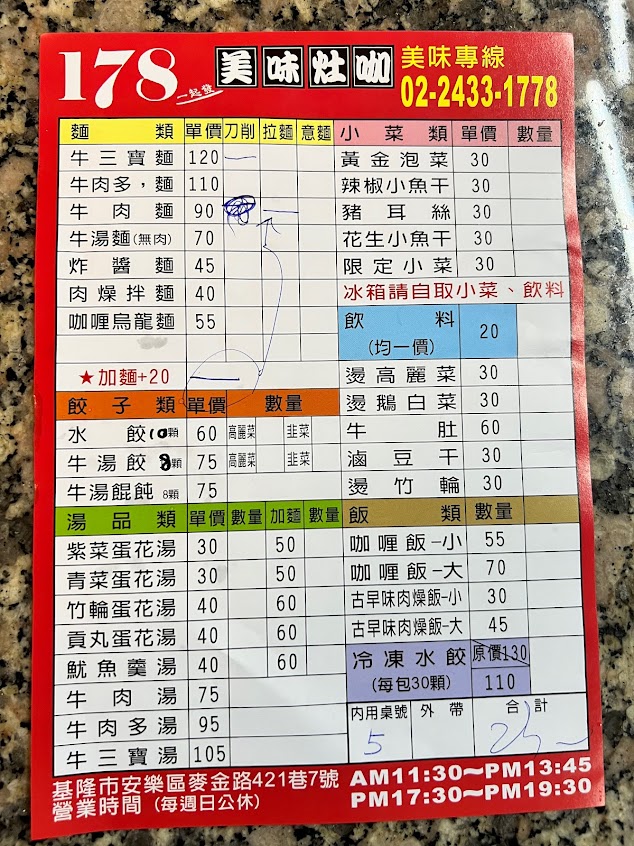 178 一起發 美味灶咖 美味專線
02-2433-1778
麵類 單價 刀削 拉麵 意麵
牛三寶麵 120 一
牛肉多,麵 110
牛肉麵 90 一
牛湯麵(無肉) 70
炸醬麵 45
肉燥拌麵 40
咖喱烏龍麵 55
★加麵+20 一
餃子類 單價 數量
水餃10顆 60 高麗菜 韭菜
牛湯餃8顆 75 高麗菜 韭菜
牛湯餛飩8顆 75
湯品類 單價 數量 加麵 數量
紫菜蛋花湯 30 50
青菜蛋花湯 30 50
竹輪蛋花湯 40 60
貢丸蛋花湯 40 60
魷魚羹湯 40 60
牛肉湯 75
牛肉多湯 95
牛三寶湯 105
小菜類 單價 數量
黃金泡菜 30
辣椒小魚干 30
豬耳絲 30
花生小魚干 30
限定小菜 30
冰箱請自取小菜、飲料
飲料 20
(均一價)
燙高麗菜 30
燙鵝白菜 30
牛肚 60
滷豆干 30
燙竹輪 30
飯類 數量
咖喱飯-小 55
咖喱飯-大 70
古早味肉燥飯-小 30
古早味肉燥飯-大 45
冷凍水餃 原價130
(每包30顆) 110
內用桌號 外帶 合計
5
基隆市安樂區麥金路421巷7號
營業時間 (每週日公休)
AM11:30～PM13:45
PM17:30～PM19:30